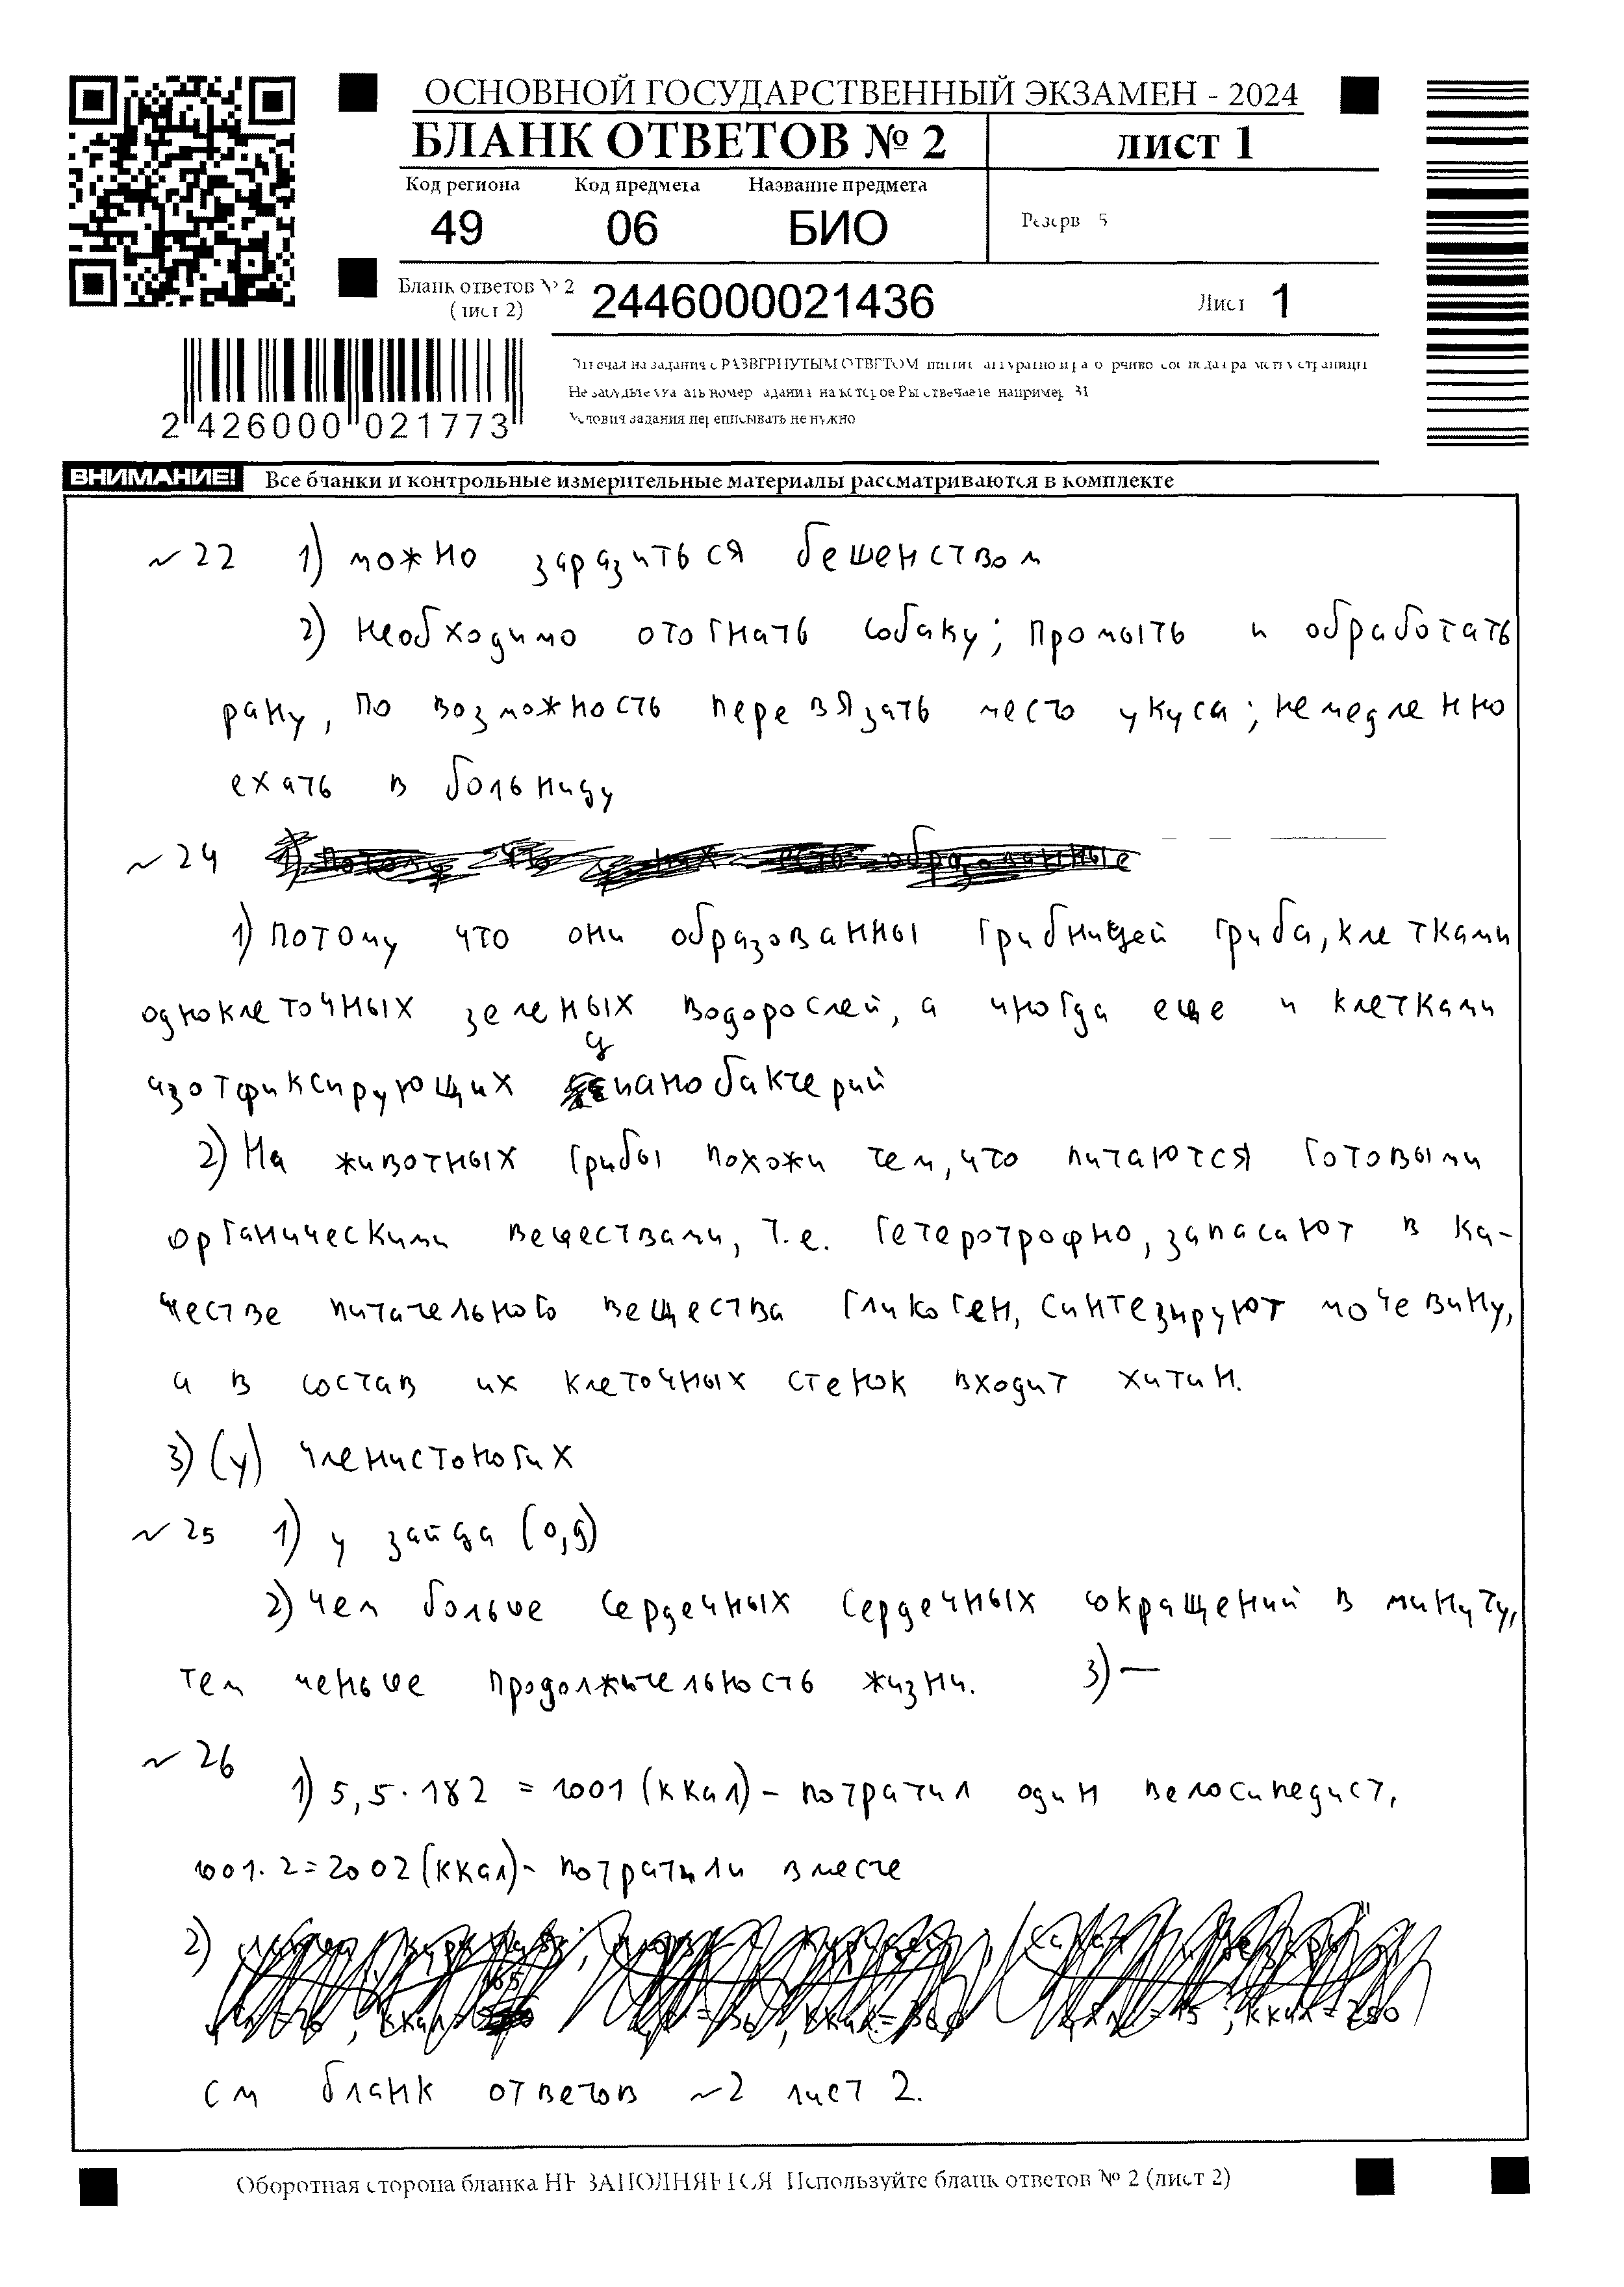 ОСНОВНОЙ ГОСУДАРСТВЕННЫЙ ЭКЗАМЕН - 2024
БЛАНК ОТВЕТОВ № 2
ЛИСТ 1
Код региона Код предмета Название предмета
49 06 БИО
Резерв 5
Бланк ответов № 2
(лист 2)
2446000021436
Лист 1
2 426000 021773
Отвечая на задания с РАЗВЕРНУТЫМ ОТВЕТОМ пишите аккуратно и разборчиво соблюдая разметку страницы
Не забудьте указать номер задания на которое Вы отвечаете например 31
Условия задания переписывать не нужно
ВНИМАНИЕ! Все бланки и контрольные измерительные материалы рассматриваются в комплекте
~ 22 1) можно заразиться бешенством
2) необходимо отогнать собаку; промыть и обработать
рану, по возможность перевязать место укуса; немедленно
ехать в больницу
~ 24
1) Потому что они образованны грибницей гриба, клетками
одноклеточных зеленых водорослей, а иногда еще и клетками
азотфиксирующих цианобактерий
2) На животных грибы похожи тем, что питаются готовыми
органическими веществами, т.е. гетеротрофно, запасают в ка-
честве питательного вещества гликоген, синтезируют мочевину,
а в состав их клеточных стенок входит хитин.
3) (у) членистоногих
~ 25 1) у зайца (0,9)
2) Чем больше сердечных сердечных сокращений в минуту,
тем меньше продолжительность жизни. 3) —
~ 26
1) 5,5 · 182 = 1001 (ккал) - потратил один велосипедист,
1001 · 2 = 2002 (ккал) - потратили вместе
2)
см бланк ответов ~2 лист 2.
Оборотная сторона бланка НЕ ЗАПОЛНЯЕТСЯ Используйте бланк ответов № 2 (лист 2)